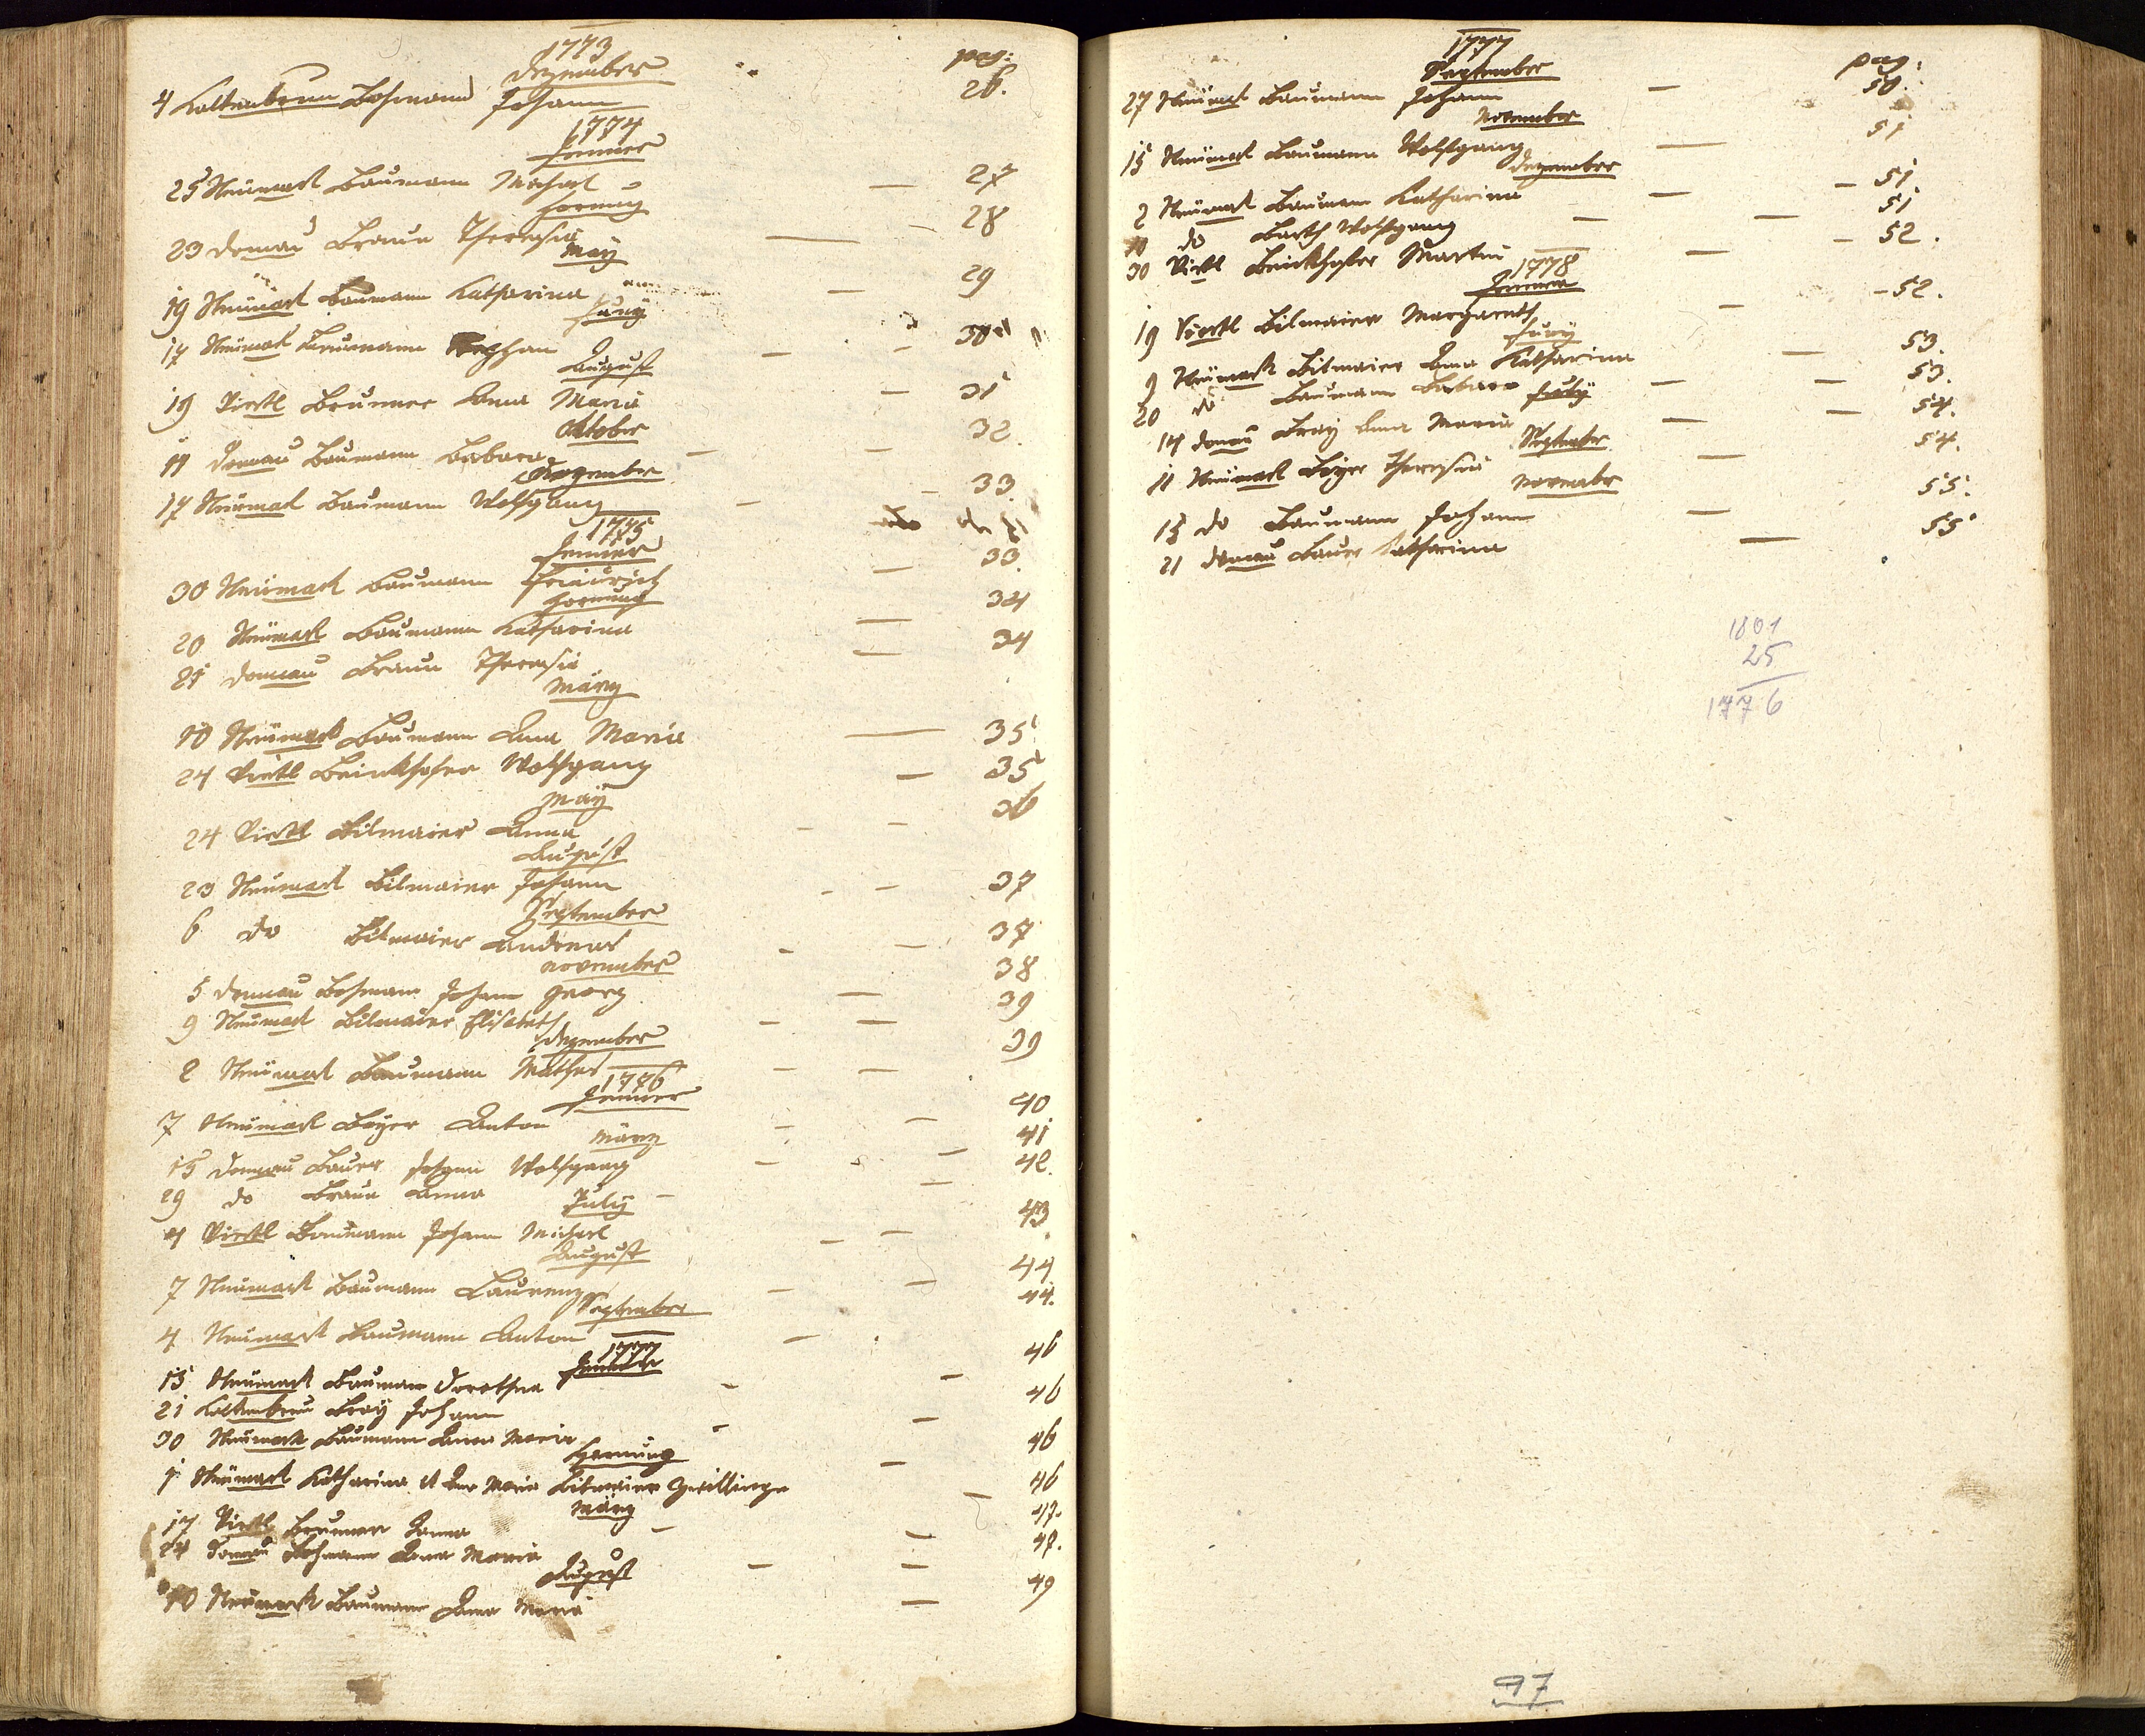 1773
Dezember
pag:
4 Kaltenbrun Bohmann Johann 26.
1774
Jenner
25 Neümark Baumann Michael — 27
Hornung
23 Donau Braun Theresia — 28
May
19 Neümark Baumann Katharina — 29
Juny
17 Neümark Baumann Stephan — 30
August
19 Viertl Brunner Anna Maria — 31
Oktober
11 Donau Baumann Barbara — 32.
Dezember
17 Neümark Baumann Wolfgang — 33.
1775
Jenner
30 Neümark Baumann Heinrich — 33.
Hornung
20 Neümark Baumann Katharina — 34
21 Donau Braun Theresia — 34
März
10 Neümark Baumann Anna Maria — 35
24 Viertl Brinkhofer Wolfgang — 35
May
24 Viertl Bilmaier Anna — 36
August
23 Neumark Bilmaier Johann — 37
September
6 do Bilmaier Andreas — 37
November
5 Donau Bohmann Johann Georg — 38
9 Neumark Bilmaier Elisabeth — 39
Dezember
2 Neümark Baumann Mathes — 39
1776
Jenner
7 Neumark Bayer Anton — 40
März
15 Donau Bauer Johann Wolfgang — 41
29 do Braun Anna — 42.
July
4 Viertl Baumann Johann Michael — 43
August
7 Neumark Baumann Laurenz — 44
September
4 Neumark Baumann Anton — 44.
1777
Jenner
15 Neümark Baumann Dorothea — 46
21 Kaltenbrun Bray Johann — 46
30 Neumark Baumann Anna Maria — 46
Hornung
1 Neümark Katharina et Ana Maria Bilmaier Zwillinge — 46
März
17 Viertl Brunner Anna — 47.
24 Donau Bohmann Anna Maria — 47.
August
10 Neumark Baumann Anna Maria — 49
1777
September
pag:
27 Neümark Baumann Johann — 50.
November
15 Neümark Baumann Wolfgang — 51
Dezember
2 Neümark Baumann Katharina — 51
10 do Barth Wolfgang — 51
30 Viertl Brinkhofer Martin — 52.
1778
Jenner
19 Viertl Bilmaier Margareth — 52.
Juny
9 Neümark Bilmaier Ana Katharina — 53.
20 do Baumann Barbara — 53.
July
14 Donau Bray Anna Maria — 54.
September
11 Neümark Bayer Theresia — 54.
November
15 do Baumann Johann — 55.
21 Donau Bauer Katharina — 55
1801
25
1776
97